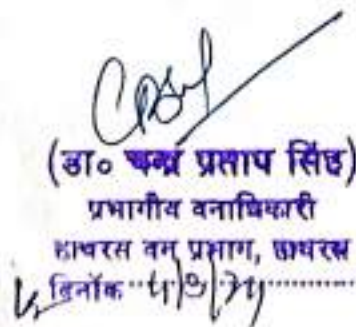 (डा० चन्द्र प्रताप सिंह)
प्रभागीय वनाधिकारी
हाथरस वन प्रभाग, हाथरस
दिनॉक